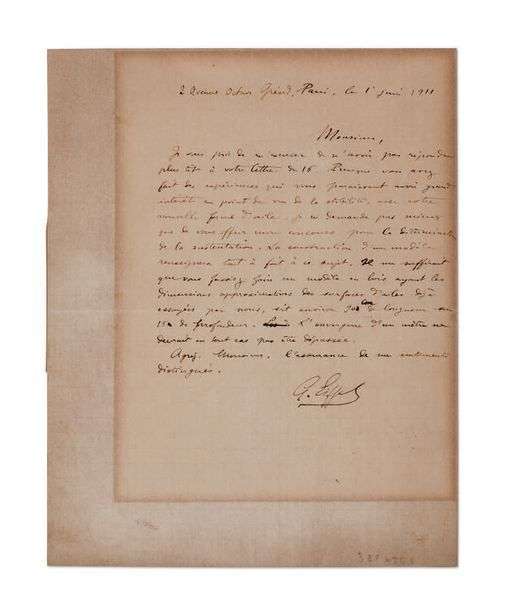 2 Avenue Octave Gréard, Paris, le 1er juin 1911
Monsieur,
Je vous prie de m'excuser de n'avoir pas répondu
plus tôt à votre lettre du 16. Puisque vous avez
fait des expériences qui vous paraissent avoir grand
intérêt au point de vue de la stabilité, avec votre
nouvelle forme d'aile, je ne demande pas mieux
que de vous offrir mon concours pour la détermination
de la sustentation. La construction d'un modèle
renseignera tout à fait à ce sujet. Il me suffirait
que vous fassiez faire un modèle en bois ayant les
dimensions approximatives des surfaces d'ailes déjà
essayées par nous, soit environ de longueur sur
15 de profondeur. L'envergure d'un mètre ne
devrait en tout cas pas être dépassée.
Agréez, Monsieur, l'assurance de mes sentiments
distingués.
G. Eiffel